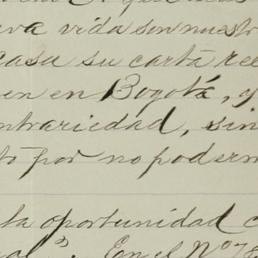 va vida son nuestro
casa su carta rec
en en Bogotá, y
ntrariedad, sin
to por no poderm
ta oportunidad c
En el No 78